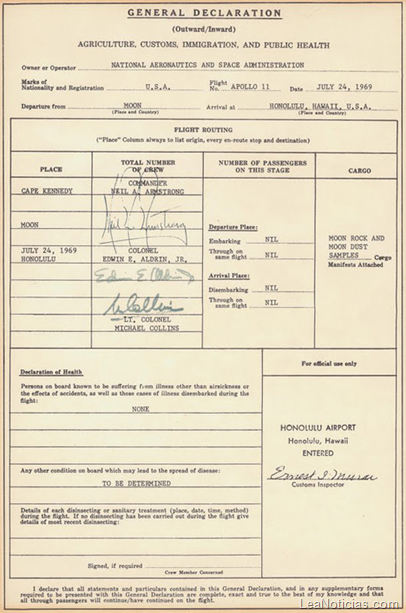 GENERAL DECLARATION
(Outward/Inward)
AGRICULTURE, CUSTOMS, IMMIGRATION, AND PUBLIC HEALTH
Owner or Operator NATIONAL AERONAUTICS AND SPACE ADMINISTRATION
Marks of Nationality and Registration U.S.A. Flight No. APOLLO 11 Date JULY 24, 1969
Departure from MOON (Place and Country) Arrival at HONOLULU, HAWAII, U.S.A. (Place and Country)
FLIGHT ROUTING
("Place" Column always to list origin, every en-route stop and destination)
PLACE
TOTAL NUMBER OF CREW
NUMBER OF PASSENGERS ON THIS STAGE
CARGO
CAPE KENNEDY
COMMANDER
NEIL A. ARMSTRONG
Neil A. Armstrong
MOON
JULY 24, 1969
HONOLULU
COLONEL
EDWIN E. ALDRIN, JR.
Edwin E. Aldrin Jr
M Collins
LT. COLONEL
MICHAEL COLLINS
Departure Place:
Embarking NIL
Through on same flight NIL
Arrival Place:
Disembarking NIL
Through on same flight NIL
MOON ROCK AND
MOON DUST
SAMPLES Cargo
Manifests Attached
Declaration of Health
Persons on board known to be suffering from illness other than airsickness or
the effects of accidents, as well as those cases of illness disembarked during the
flight:
NONE
Any other condition on board which may lead to the spread of disease:
TO BE DETERMINED
Details of each disinsecting or sanitary treatment (place, date, time, method)
during the flight. If no disinsecting has been carried out during the flight give
details of most recent disinsecting:
Signed, if required
Crew Member Concerned
For official use only
HONOLULU AIRPORT
Honolulu, Hawaii
ENTERED
Ernest I. Murai
Customs Inspector
I declare that all statements and particulars contained in this General Declaration, and in any supplementary forms
required to be presented with this General Declaration are complete, exact and true to the best of my knowledge and that
all through passengers will continue/have continued on the flight.
LeaNoticias.com